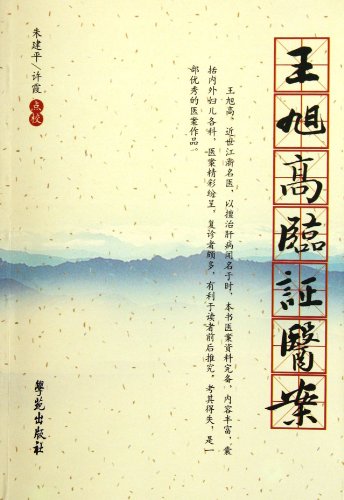 王旭高臨証醫案
朱建平/许霞 点校
王旭高，近世江浙名医，以擅治肝病闻名于时，本书医案资料完备，内容丰富，囊
括内外妇儿各科，医案精彩纷呈，复诊者颇多，有利于读者前后推究，考其得失，是一
部优秀的医案作品。
學苑出版社